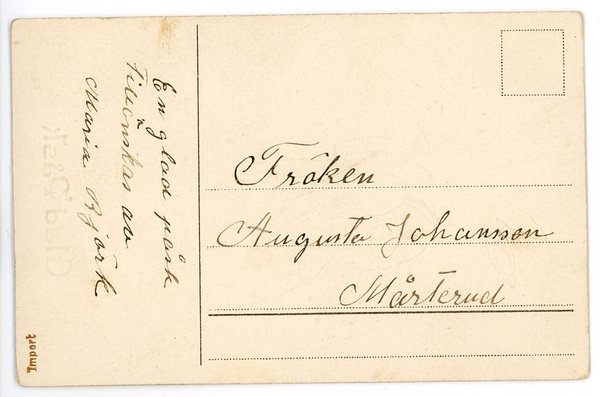 En glad påsk
tillönskas av
Maria Björk
Fröken
Augusta Johansson
Mårterud
Import